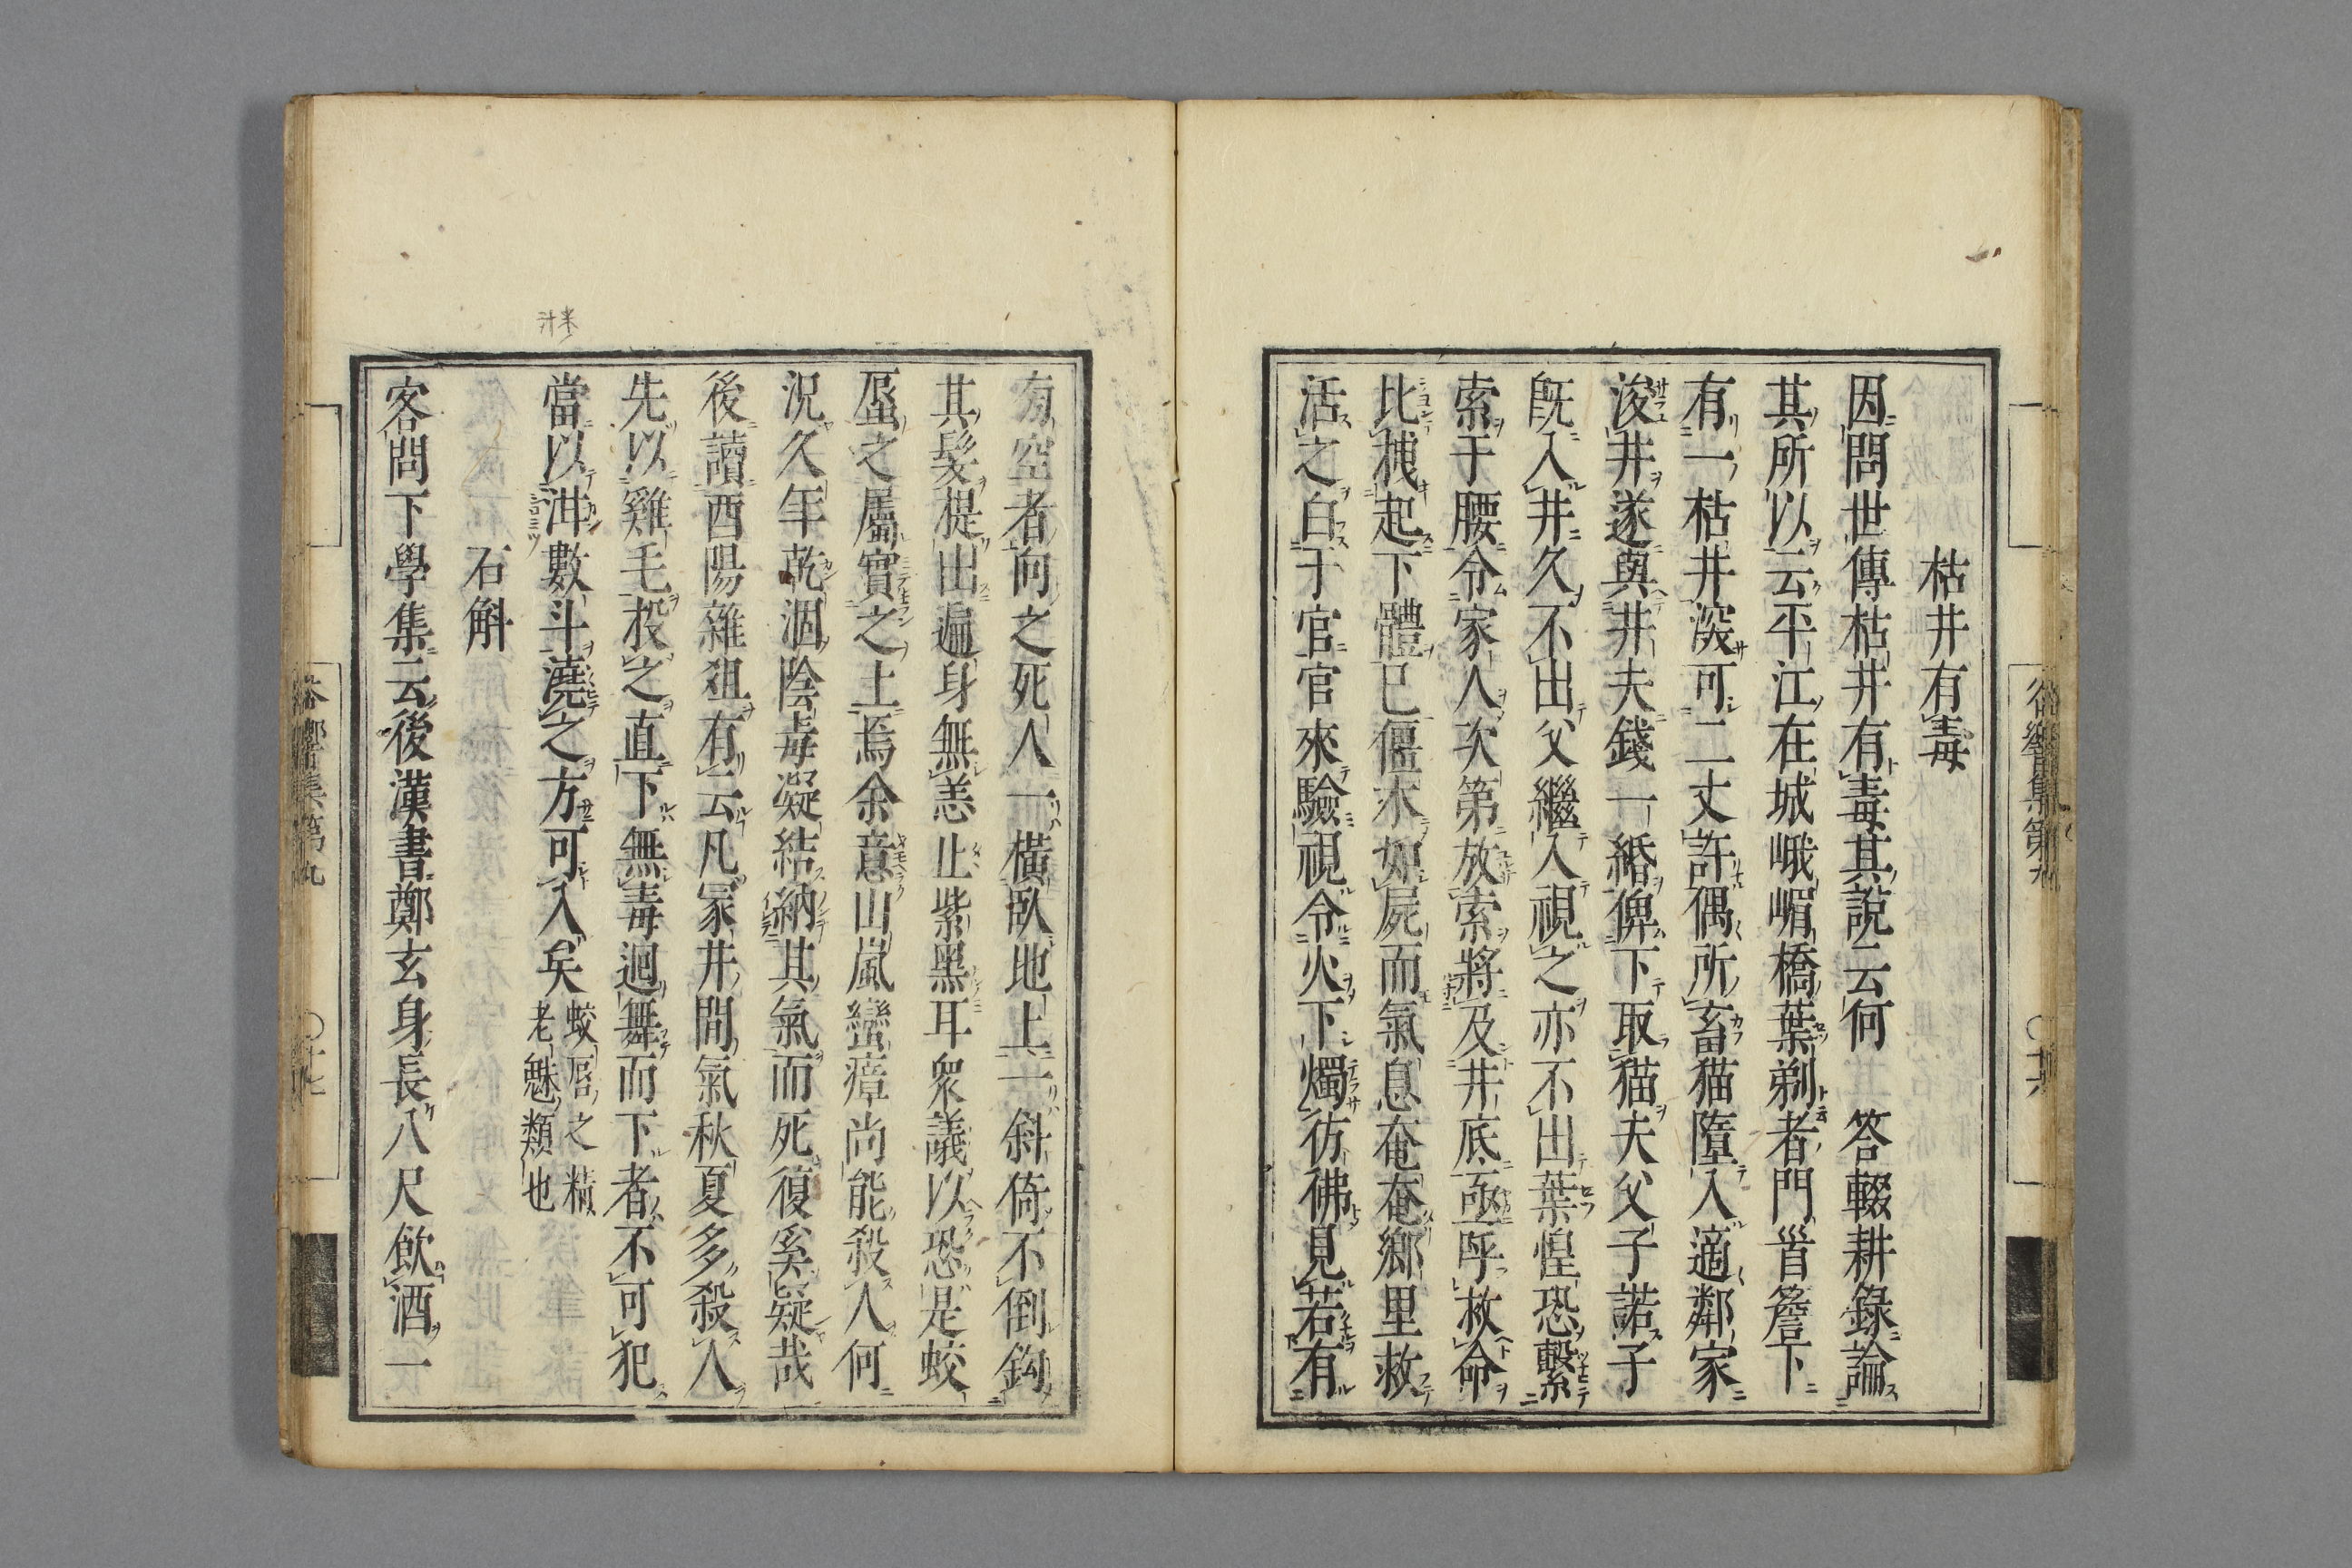 枯井有毒
因問世傳枯井有毒其說云何　答輟耕錄論
其所以云平江在城峨嵋橋葉剃者門首簷下
有一枯井深可二丈許偶所畜猫墮入適鄰家
浚井遂與井夫錢一緡俾下取猫夫父子諾子
旣入井久不出父繼入視之亦不出葉惶恐繫
索于腰令家人次第放索將及井底亟呼救命
比拽起下體已僵木如屍而氣息奄奄鄉里救
活之白于官官來驗視令火下燭彷彿見若有
有空者向之死人一橫臥地上一斜倚不倒鈎
其髮提出遍身無恙止紫黑耳衆議以恐是蛟
蜃之屬實之土焉余意山嵐蠻瘴尚能殺人何
況久年乾涸陰毒凝結納其氣而死復奚疑哉
後讀酉陽雜俎有云凡冢井間氣秋夏多殺人
先以雞毛投之直下無毒迴舞而下者不可犯
當以泔數斗澆之方可入矣蛟蜃之精老魅類也
石斛
客問下學集云後漢書鄭玄身長八尺飲酒一
谷響集第九
〇十七